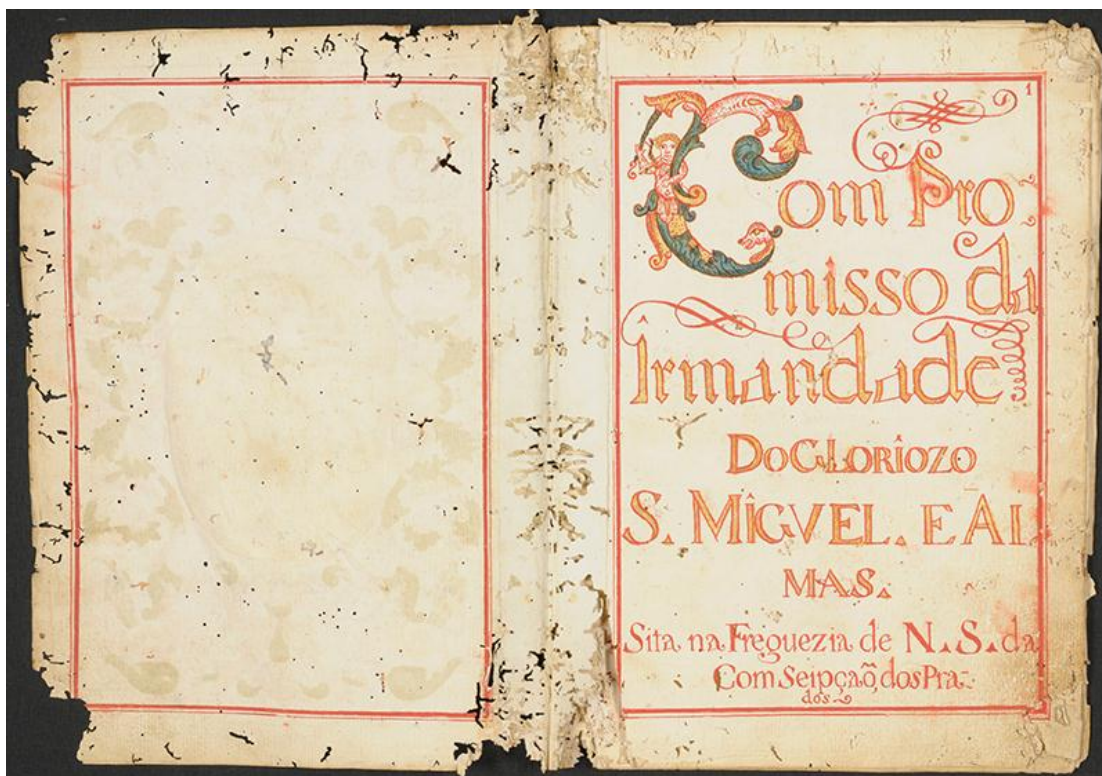 1
Com Pro-
misso da
Îrmandade
DO GLORIOZO
S. MÎGVEL. E AL
MAS.
Sita na Freguezia de N. S. da
Com Seipçaõ, dos Pra-
dos